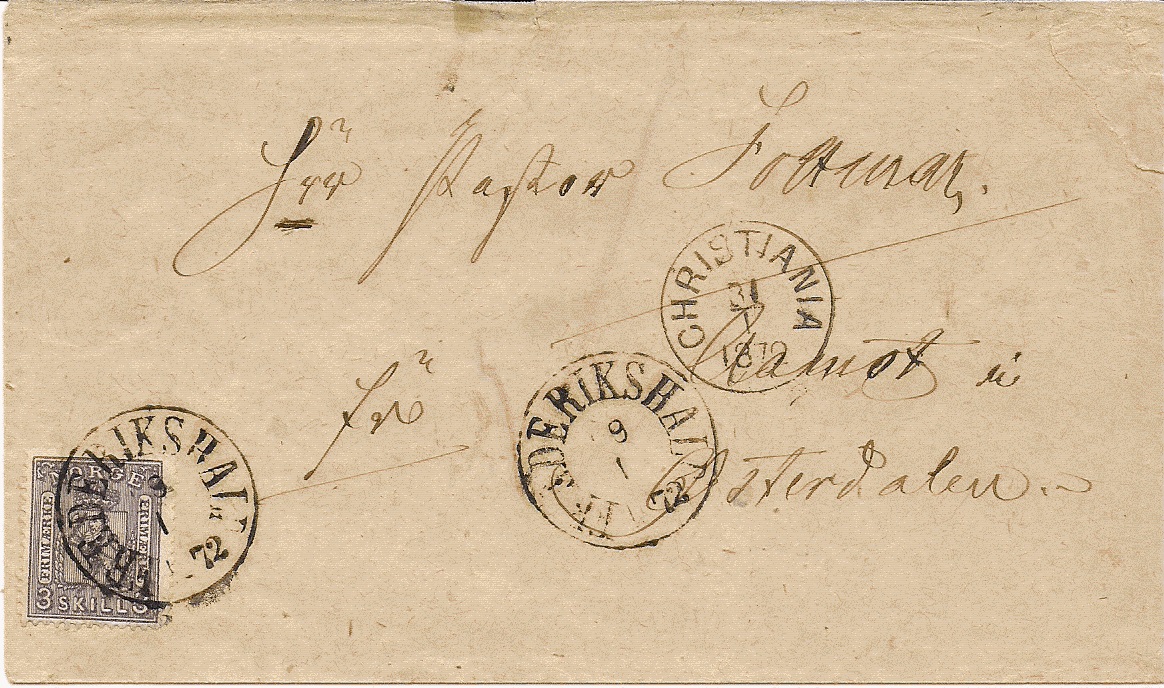 Hrr Pastor
CHRISTIANIA
31
1
1872
frit
Aamot i
FREDERIKSHALD
9
1
72
Østerdalen.
FREDERIKSHALD
9
1
72
NORGE
FRIMÆRKE FRIMÆRKE
3 SKILL 3